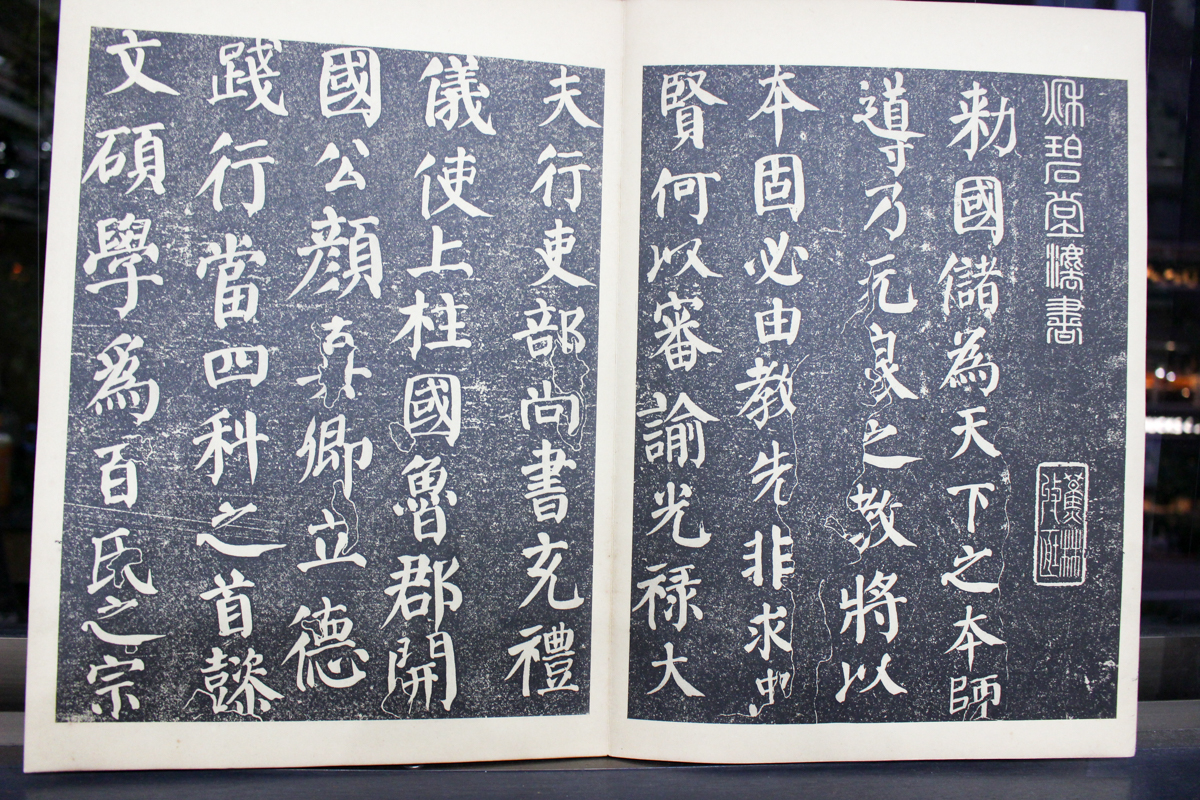 秋碧堂灋書
蕉林
勅國儲為天下之本師
導乃元良之教將以
本固必由教先非求忠
賢何以審諭光祿大
夫行吏部尚書充禮
儀使上柱國魯郡開
國公顏真卿立德
踐行當四科之首懿
文碩學爲百氏之宗